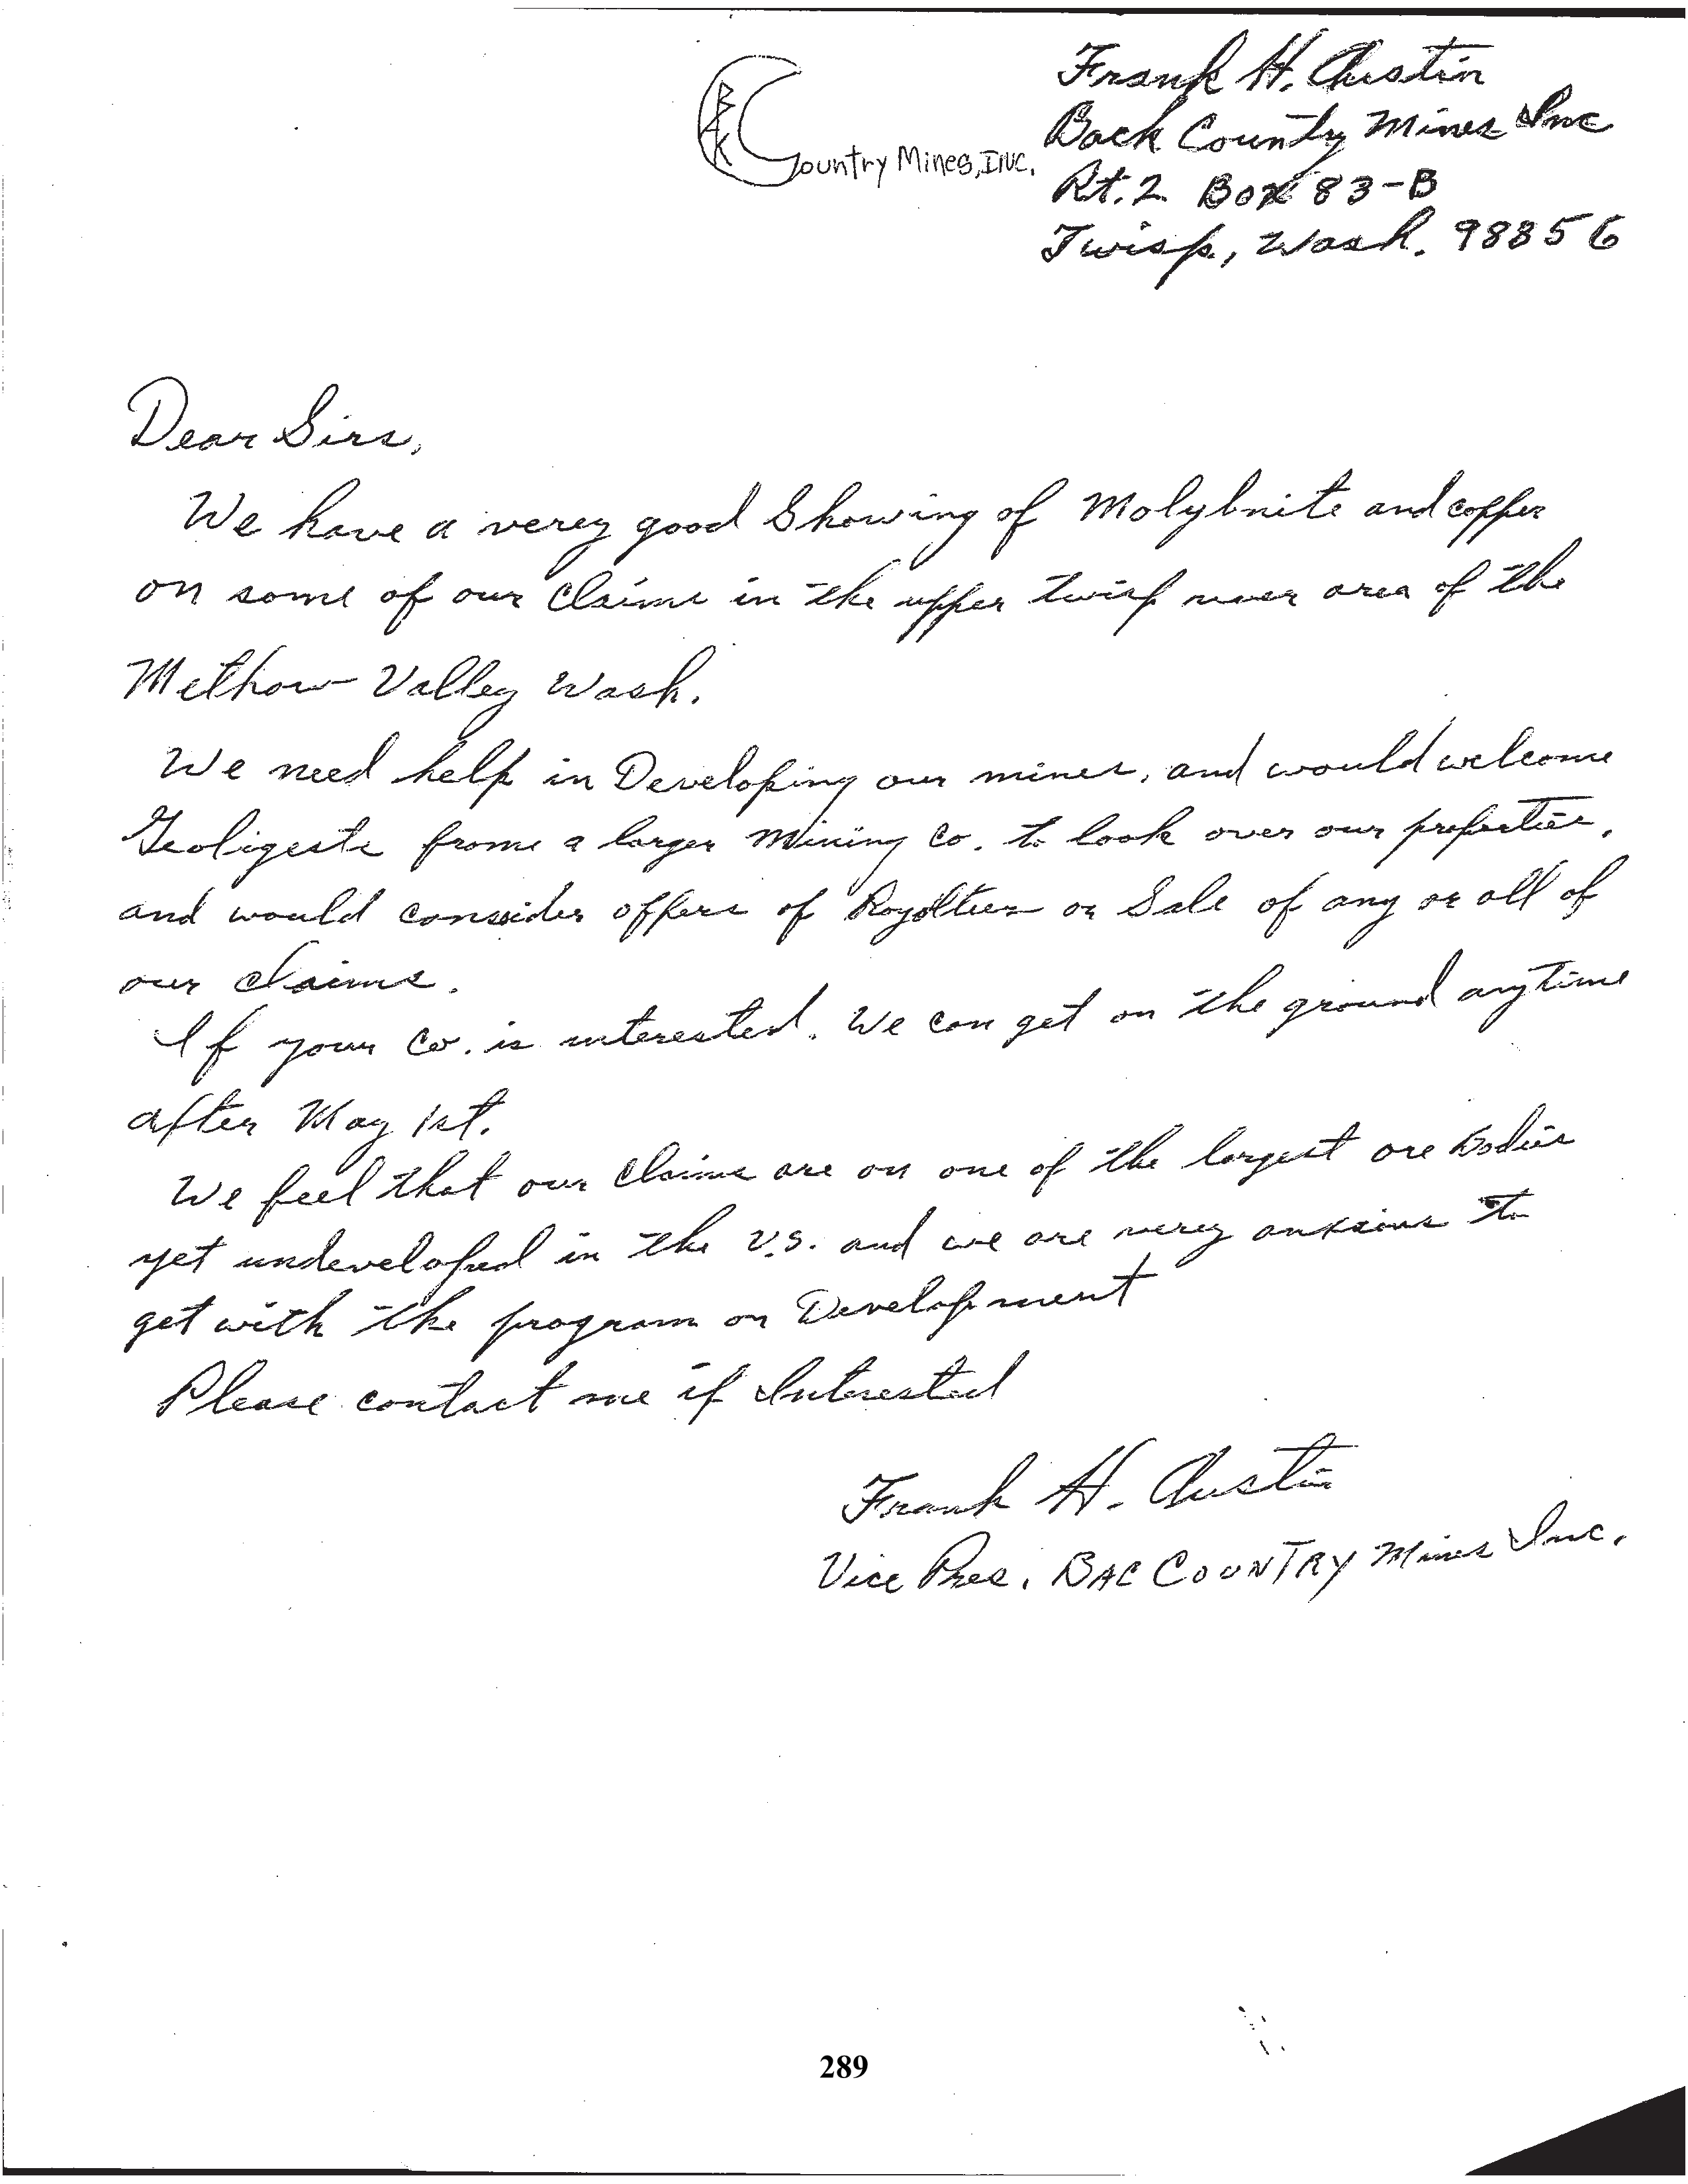 Frank H. Austin
BACK Country Mines, INC.
Back County Mines Inc
Rt. 2 Box 83-B
Twisp, Wash. 98856
Dear Sirs,
We have a verey good Showing of Molybnite and copper
on some of our Claims in the upper twisp river area of the
Methow Valley Wash.
We need help in Developing our mines, and would welcome
Geoligests frome a larger Mining Co. to look over our properties,
and would consider offers of Royolties or Sale of any or all of
our claims.
If your Co. is interested. We can get on the ground anytime
after May 1st.
We feel that our Claims are on one of the largest ore Bodies
yet undeveloped in the U.S. and we are verey anxious to
get with the program on Development
Please contact me if Interested
Frank H. Austin
Vice Pres. BAC COUNTRY Mines Inc.
289